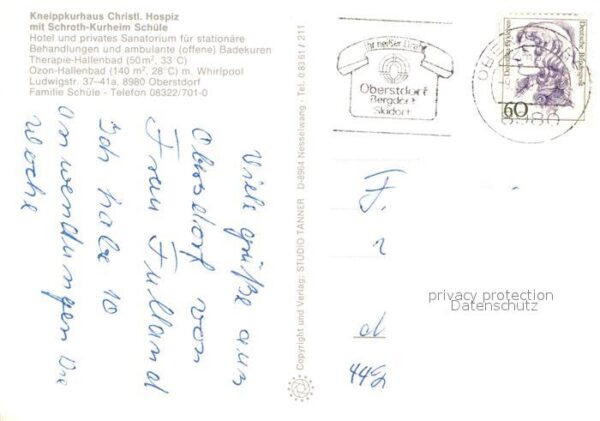 Kneippkurhaus Christl. Hospiz
mit Schroth-Kurheim Schüle
Hotel und privates Sanatorium für stationäre
Behandlungen und ambulante (offene) Badekuren
Therapie-Hallenbad (50m², 33°C)
Ozon-Hallenbad (140 m², 28°C) m. Whirlpool
Ludwigstr. 37-41a, 8980 Oberstdorf
Familie Schüle - Telefon 08322/701-0
Copyright und Verlag: STUDIO TANNER D-8964 Nesselwang · Tel. 0 83 61 / 2 11
Ihr heißer Draht
Oberstdorf
Bergdorf
Skidorf
8980
Deutsche Bundespost
60
Viele grüße aus
Obersdorf von
Frau
Ich habe 10
anwendungen Die
woche
F.
d
449
privacy protection
Datenschutz